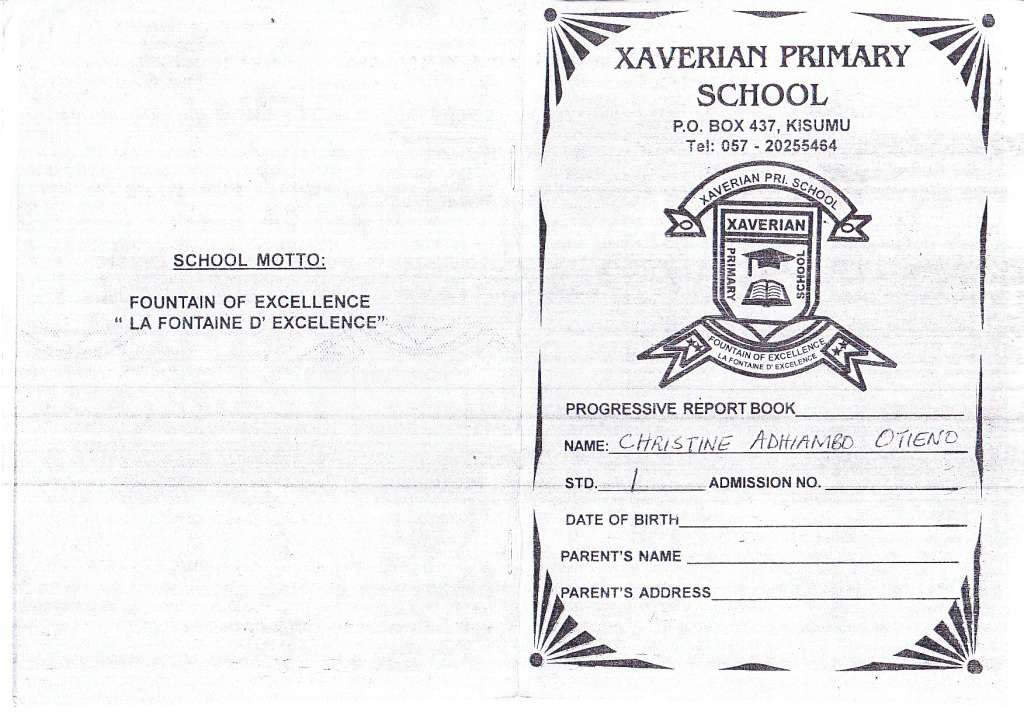 SCHOOL MOTTO:
FOUNTAIN OF EXCELLENCE
“ LA FONTAINE D’ EXCELENCE”
XAVERIAN PRIMARY
SCHOOL
P.O. BOX 437, KISUMU
Tel: 057 - 20255464
XAVERIAN PRI. SCHOOL
XAVERIAN
PRIMARY
SCHOOL
FOUNTAIN OF EXCELLENCE
LA FONTAINE D' EXCELENCE
PROGRESSIVE REPORT BOOK
NAME: CHRISTINE ADHIAMBO OTIENO
STD. 1 ADMISSION NO.
DATE OF BIRTH
PARENT'S NAME
PARENT'S ADDRESS